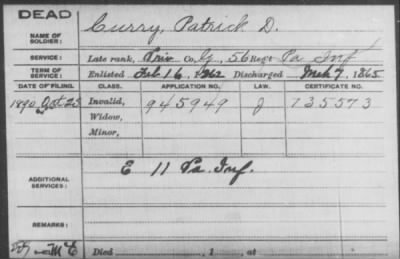 DEAD
NAME OF SOLDIER: Curry, Patrick D.
SERVICE: Late rank, Priv Co. G, 56 Reg't Pa Inf
TERM OF SERVICE: Enlisted Feb 16, 1862 Discharged Mch 7, 1865
DATE OF FILING. CLASS. APPLICATION NO. LAW. CERTIFICATE NO.
1890 Oct 25 Invalid, 945949 J 735573
Widow,
Minor,
ADDITIONAL SERVICES: E 11 Pa. Inf.
REMARKS:
Died , 1 , at